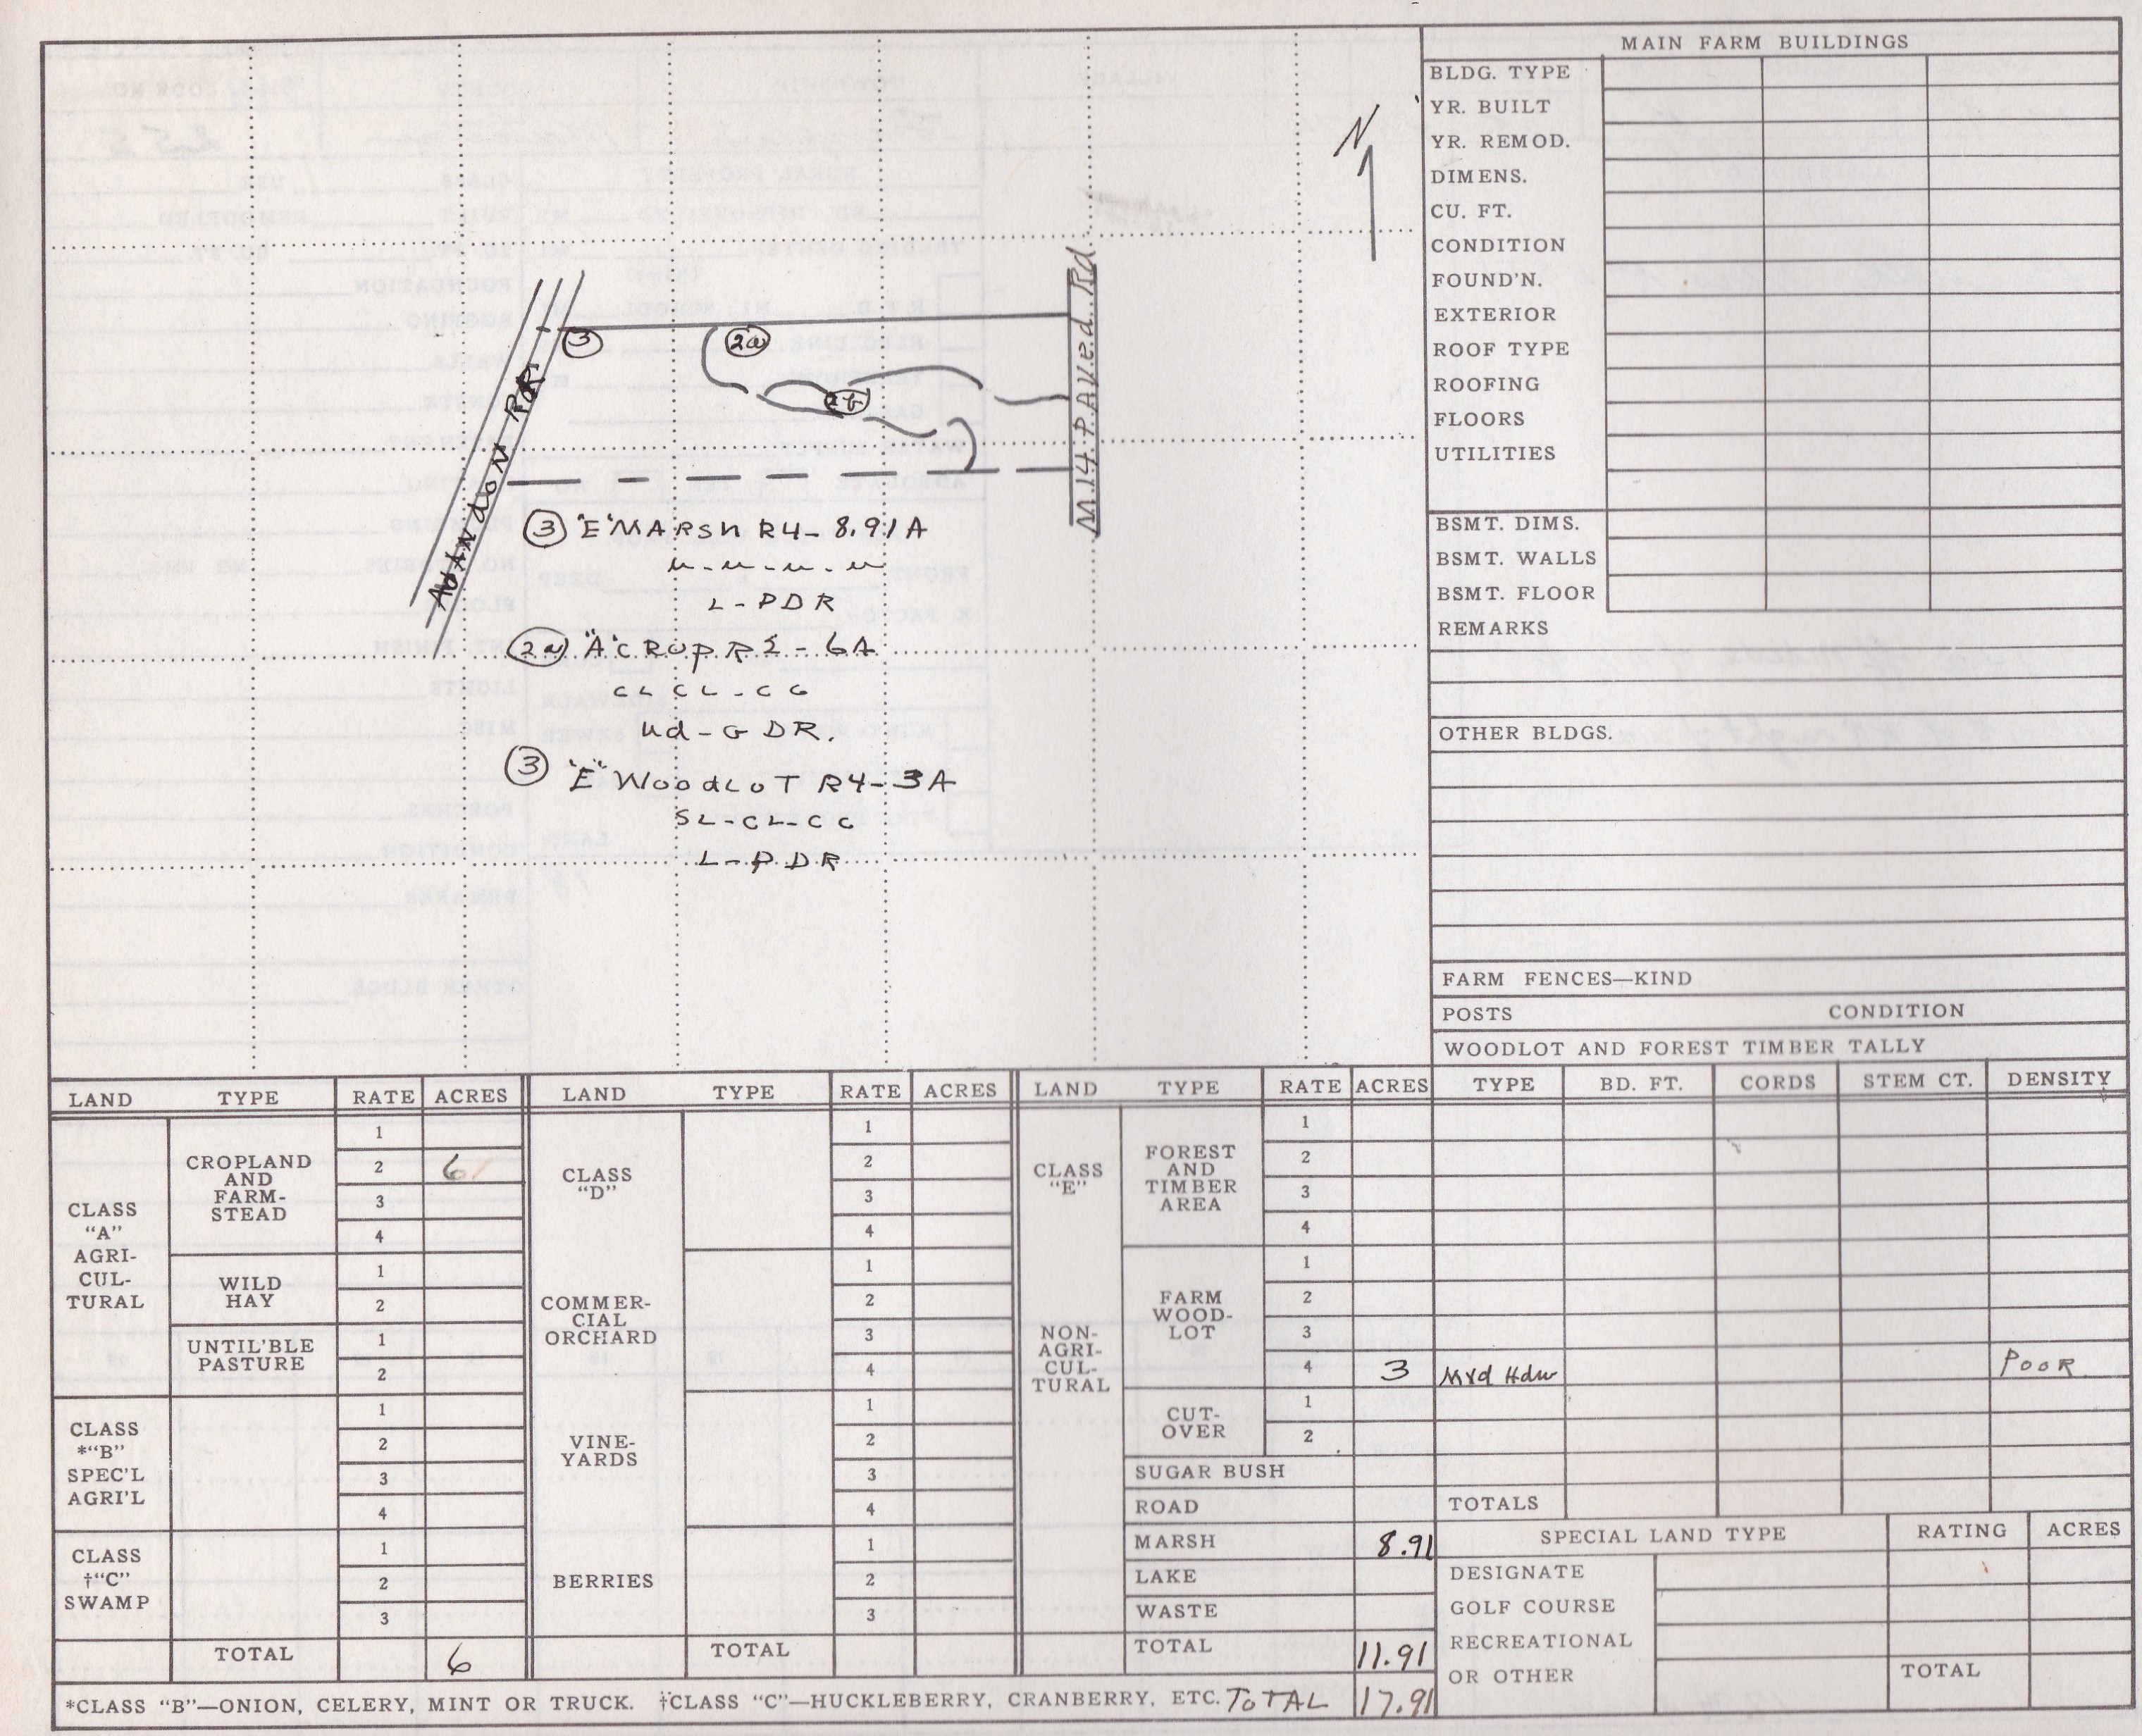 N
M 14 PAVed Rd
3
2a
③ "E" MARSH R4- 8.91A
L-PDR
2a "A" CROP R2 - 6A
CL CL - CC
ud-G DR.
③ "E" WoodLoT R4-3A
SL-CL-CC
L-PDR
MAIN FARM BUILDINGS
BLDG. TYPE
YR. BUILT
YR. REMOD.
DIMENS.
CU. FT.
CONDITION
FOUND'N.
EXTERIOR
ROOF TYPE
ROOFING
FLOORS
UTILITIES
BSMT. DIMS.
BSMT. WALLS
BSMT. FLOOR
REMARKS
OTHER BLDGS.
FARM FENCES—KIND
POSTS CONDITION
WOODLOT AND FOREST TIMBER TALLY
TYPE BD. FT. CORDS STEM CT. DENSITY
LAND TYPE RATE ACRES
CLASS
"A"
AGRI-
CUL-
TURAL
CROPLAND
AND
FARM-
STEAD
1
2 6
3
4
WILD
HAY
1
2
UNTIL'BLE
PASTURE
1
2
CLASS
*"B"
SPEC'L
AGRI'L
1
2
3
4
CLASS
†"C"
SWAMP
1
2
3
TOTAL 6
LAND TYPE RATE ACRES
CLASS
"D"
1
2
3
4
COMMER-
CIAL
ORCHARD
1
2
3
4
VINE-
YARDS
1
2
3
4
BERRIES
1
2
3
TOTAL
LAND TYPE RATE ACRES
CLASS
"E"
NON-
AGRI-
CUL-
TURAL
FOREST
AND
TIMBER
AREA
1
2
3
4
FARM
WOOD-
LOT
1
2
3
4 3 Mxd Hdw POOR
CUT-
OVER
1
2
SUGAR BUSH
ROAD
MARSH 8.91
LAKE
WASTE
TOTAL 11.91
TOTALS
SPECIAL LAND TYPE RATING ACRES
DESIGNATE
GOLF COURSE
RECREATIONAL
OR OTHER
TOTAL
*CLASS "B"—ONION, CELERY, MINT OR TRUCK. †CLASS "C"—HUCKLEBERRY, CRANBERRY, ETC. ToTAL 17.91